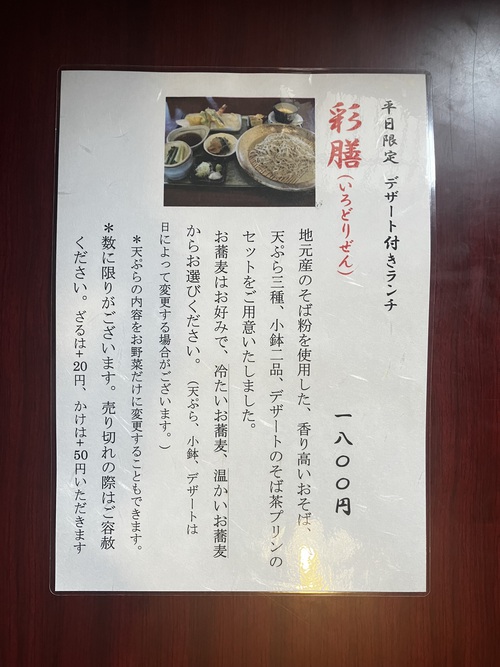 平日限定 デザート付きランチ
彩膳(いろどりぜん) 一八〇〇円
地元産のそば粉を使用した、香り高いおそば、
天ぷら三種、小鉢二品、デザートのそば茶プリンの
セットをご用意いたしました。
お蕎麦はお好みで、冷たいお蕎麦、温かいお蕎麦
からお選びください。(天ぷら、小鉢、デザートは
日によって変更する場合がございます。)
*天ぷらの内容をお野菜だけに変更することもできます。
*数に限りがございます。売り切れの際はご容赦
ください。ざるは+20円、かけは+50円いただきます